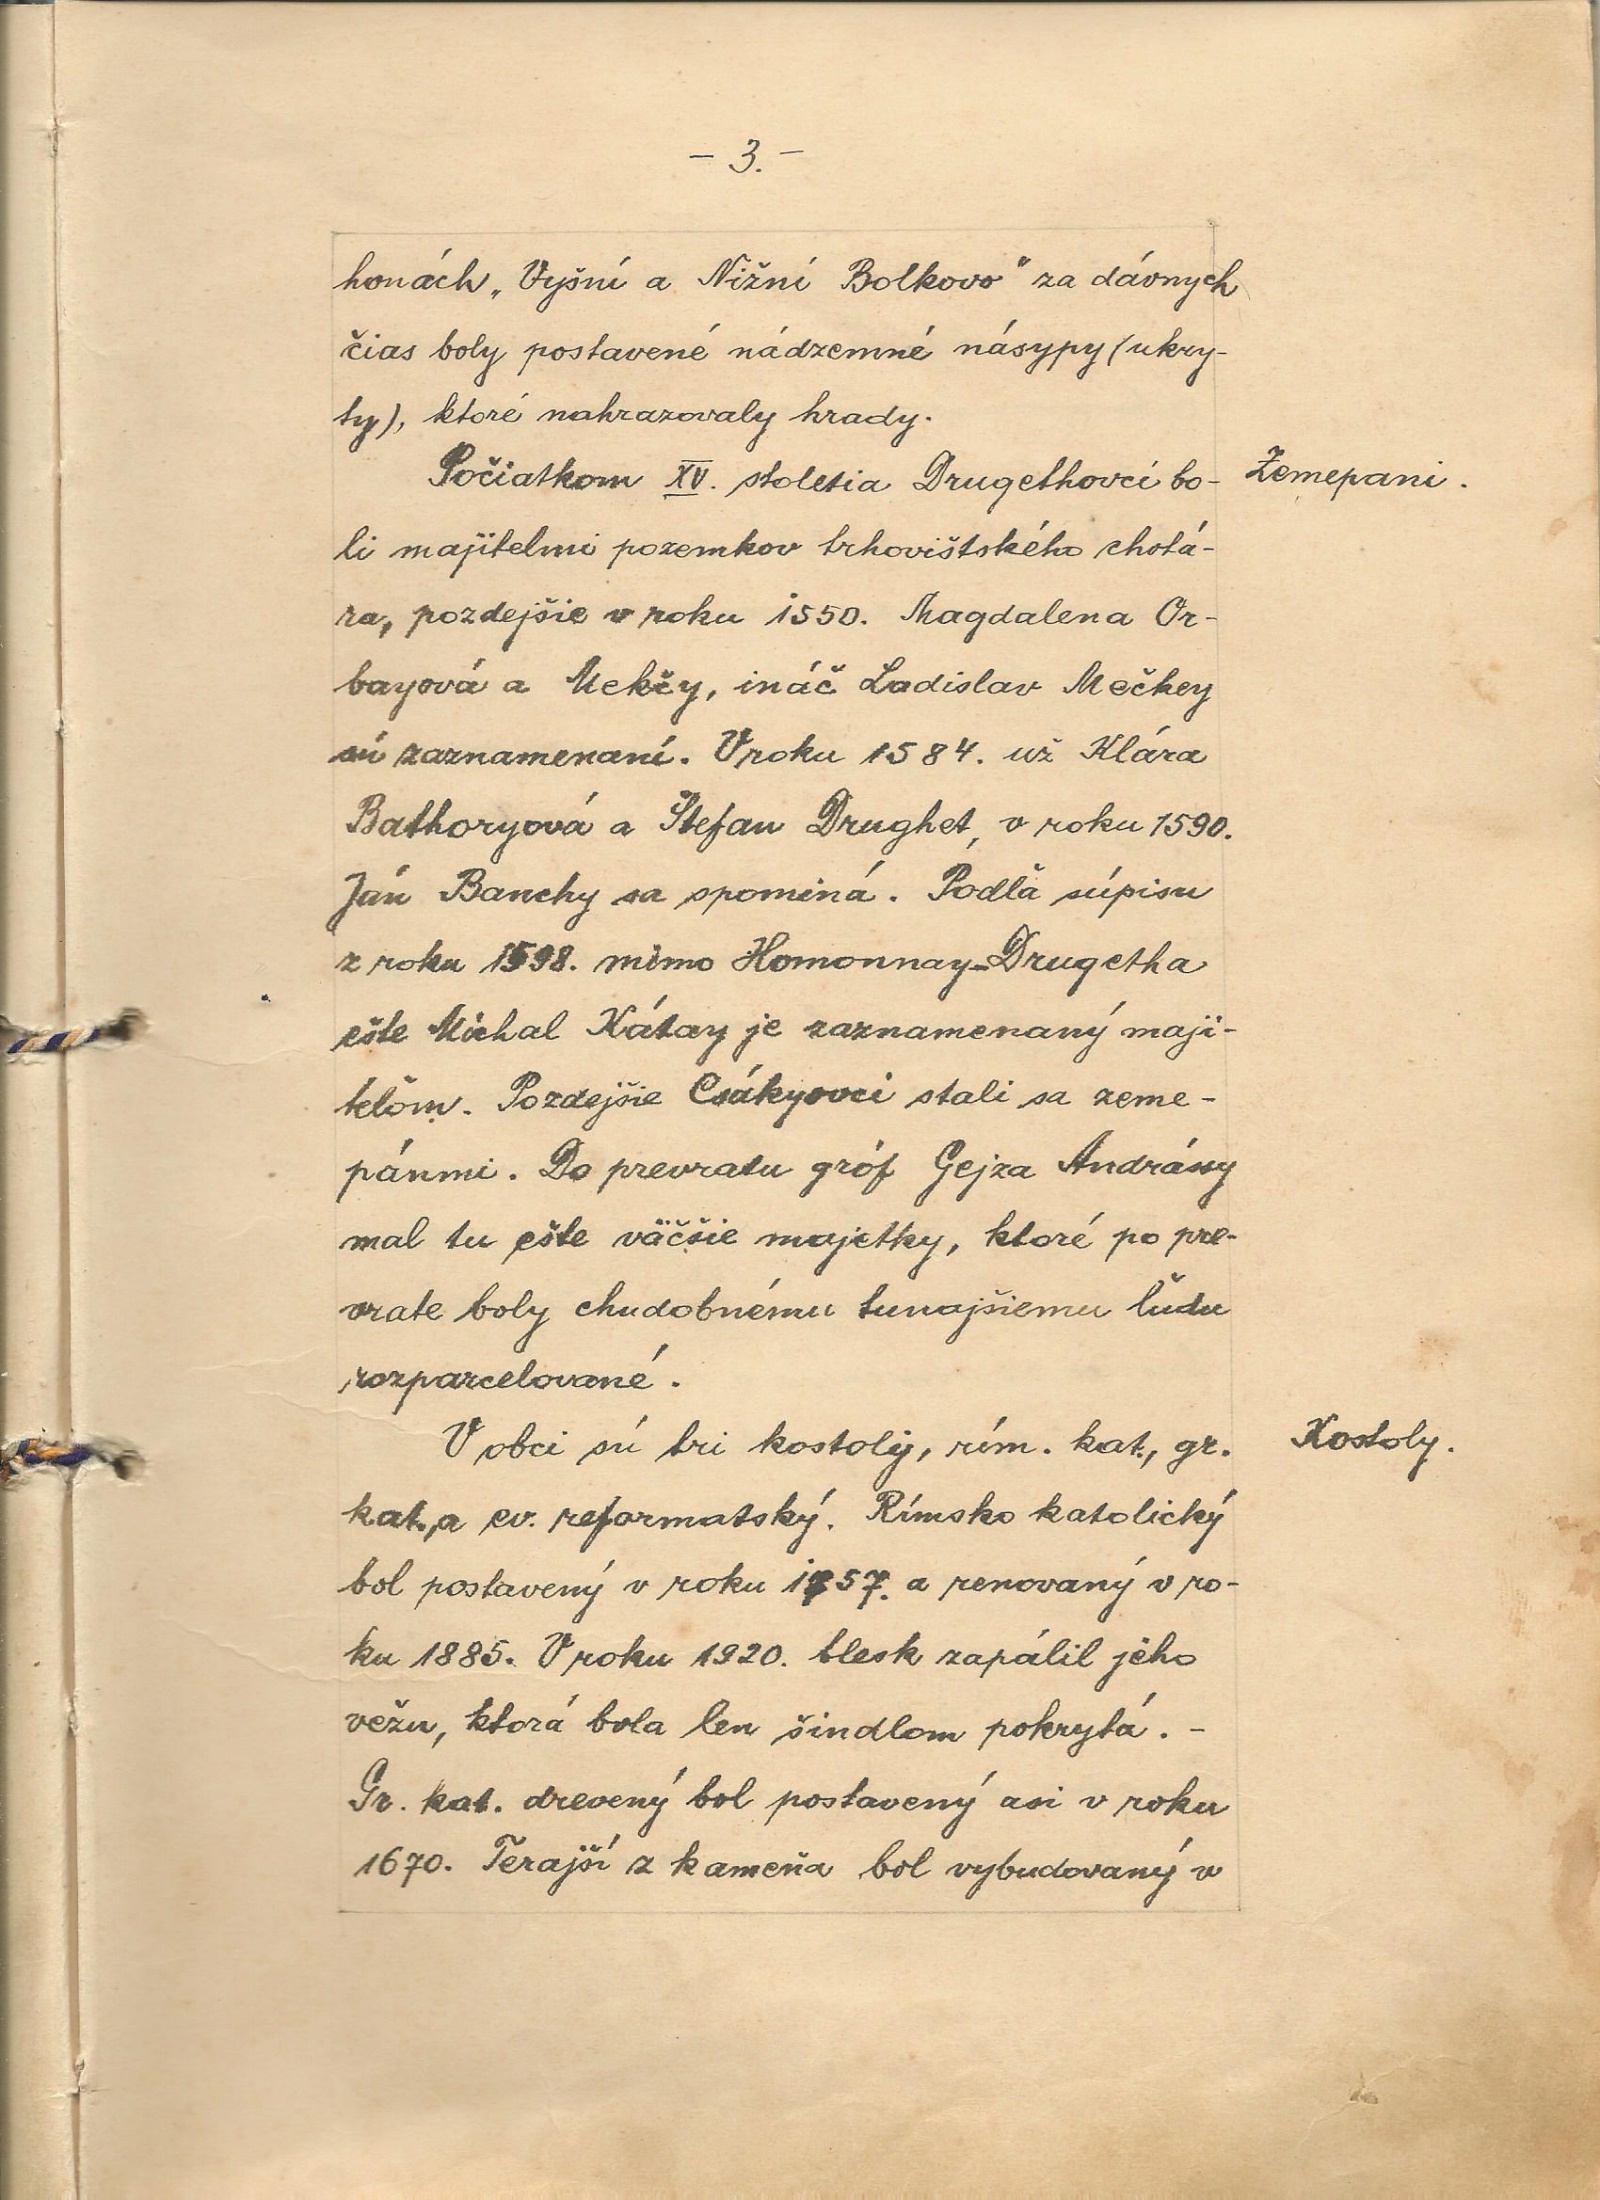 - 3. -
honách „Vyšní a Nižní Bolkovo" za dávnych
čias boly postavené nádzemné násypy (ukry-
ty), ktoré nahrazovaly hrady.
Počiatkom XV. stoletia Drugethovci bo-
Zemepani.
li majitelmi pozemkov trhovištského chotá-
ra, pozdejšie v roku 1550. Magdalena Or-
bayová a Mekčy, ináč Ladislav Mečkey
sú zaznamenaní. V roku 1584. už Klára
Bathoryová a Štefan Drughet, v roku 1590.
Ján Banchy sa spominá. Podľa súpisu
z roku 1598. mimo Homonnay-Drugetha
ešte Michal Kátay je zaznamenaný maji-
teľom. Pozdejšie Csákyovci stali sa zeme-
pánmi. Do prevratu gróf Gejza Andrássy
mal tu ešte väčšie majetky, ktoré po pre-
vrate boly chudobnému tunajšiemu ľudu
rozparcelované.
V obci sú tri kostoly, rím. kat., gr.
Kostoly.
kat., a ev. reformatský. Rímsko katolický
bol postavený v roku 1757. a renovaný v ro-
ku 1885. V roku 1920. blesk zapálil jeho
vežu, ktorá bola len šindlom pokrytá. -
Gr. kat. drevený bol postavený asi v roku
1670. Terajší z kameňa bol vybudovaný v